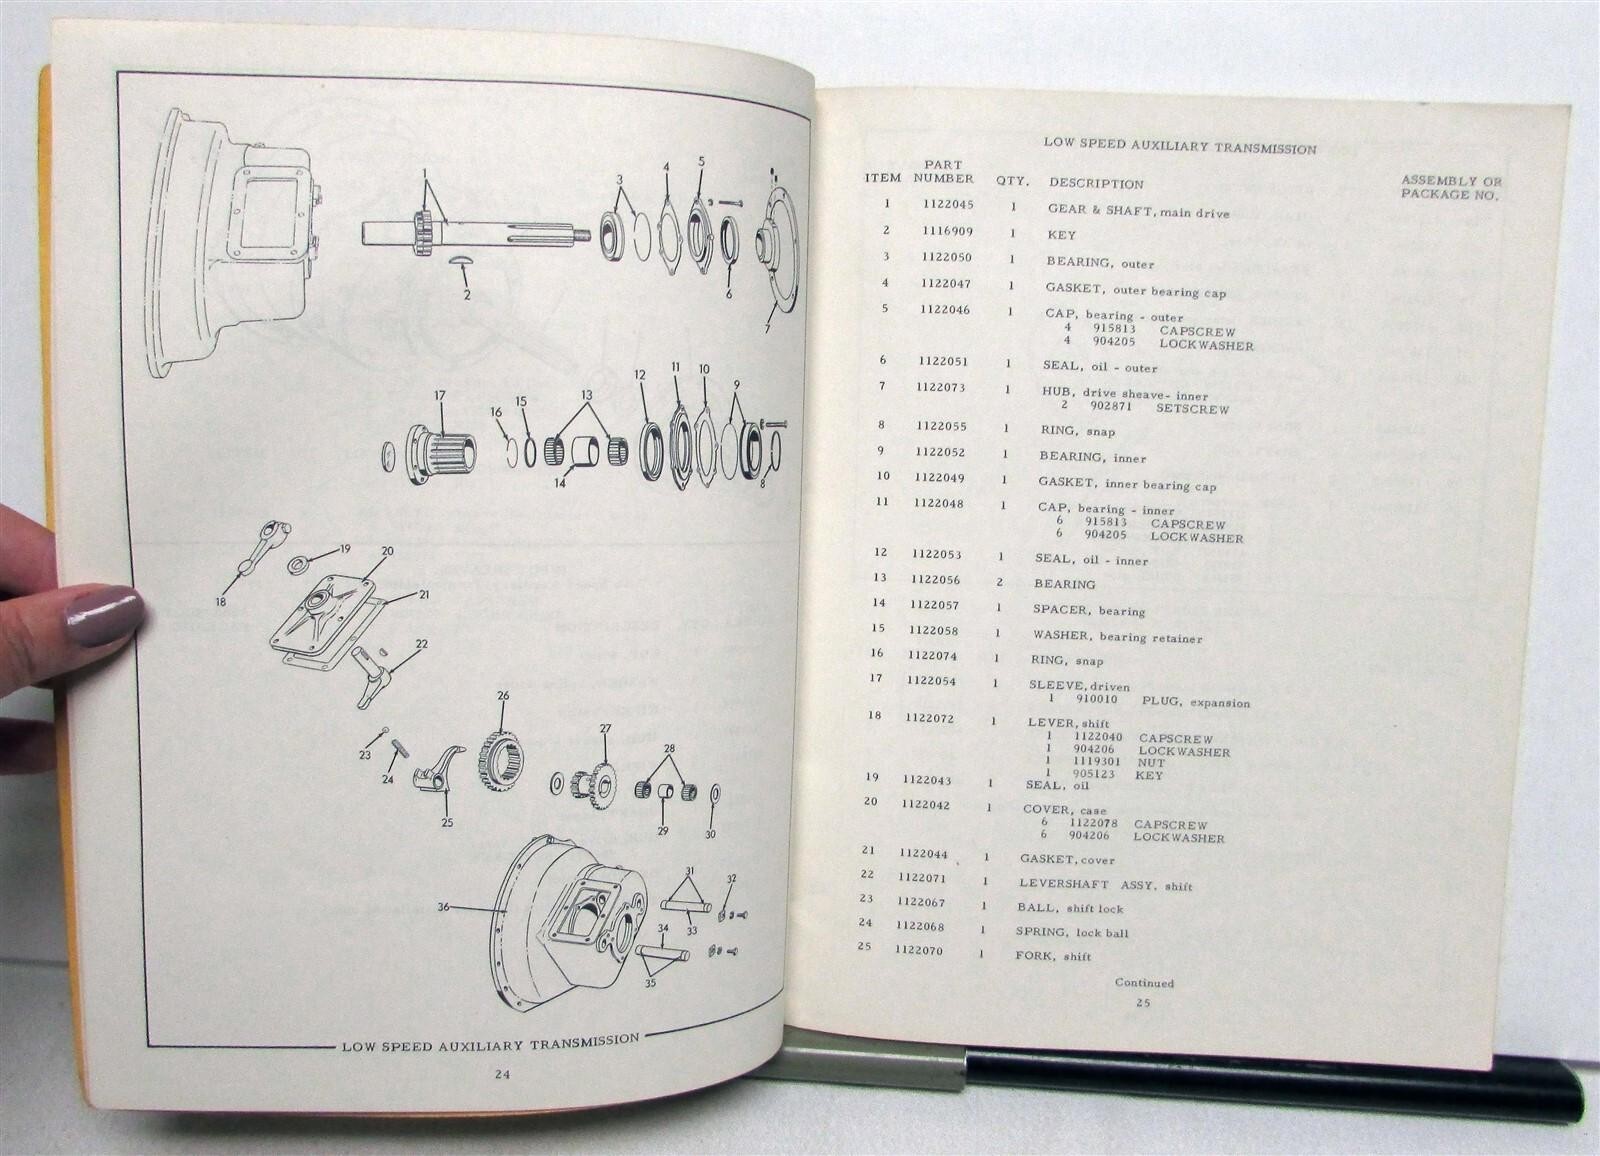 1
2
3
4
5
6
7
8
9
10
11
12
13
14
15
16
17
18
19
20
21
22
23
24
25
26
27
28
29
30
31
32
33
34
35
36
LOW SPEED AUXILIARY TRANSMISSION
24
LOW SPEED AUXILIARY TRANSMISSION
ITEM PART NUMBER QTY. DESCRIPTION ASSEMBLY OR PACKAGE NO.
1 1122045 1 GEAR & SHAFT, main drive
2 1116909 1 KEY
3 1122050 1 BEARING, outer
4 1122047 1 GASKET, outer bearing cap
5 1122046 1 CAP, bearing - outer
4 915813 CAPSCREW
4 904205 LOCKWASHER
6 1122051 1 SEAL, oil - outer
7 1122073 1 HUB, drive sheave- inner
2 902871 SETSCREW
8 1122055 1 RING, snap
9 1122052 1 BEARING, inner
10 1122049 1 GASKET, inner bearing cap
11 1122048 1 CAP, bearing - inner
6 915813 CAPSCREW
6 904205 LOCKWASHER
12 1122053 1 SEAL, oil - inner
13 1122056 2 BEARING
14 1122057 1 SPACER, bearing
15 1122058 1 WASHER, bearing retainer
16 1122074 1 RING, snap
17 1122054 1 SLEEVE, driven
1 910010 PLUG, expansion
18 1122072 1 LEVER, shift
1 1122040 CAPSCREW
1 904206 LOCKWASHER
1 1119301 NUT
1 905123 KEY
19 1122043 1 SEAL, oil
20 1122042 1 COVER, case
6 1122078 CAPSCREW
6 904206 LOCKWASHER
21 1122044 1 GASKET, cover
22 1122071 1 LEVERSHAFT ASSY. shift
23 1122067 1 BALL, shift lock
24 1122068 1 SPRING, lock ball
25 1122070 1 FORK, shift
Continued
25